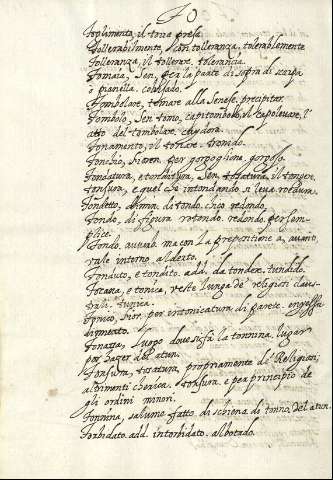 TO
Toglimento, il torre presa.
Tollerabilmente, con tolleranza, tolerablemente
Tolleranza, il tollerare, tolerancia.
Tomaia, Sen, per la parte di sopra di scarpa
ò pianella, cobillado.
Tombolare, tomare alla Senese, precipitar.
Tombolo, Sen, tomo, capitombolo, il capolevare, l'
atto del tombolare, chydora.
Tonamento, il tonare, tronido.
Tonchio,
Tondatura, e tonditura, Sen, tosatura, il tondere,
tonsura, e quel che intondando si leva
Tondetto, dimin. di tondo, chico redondo,
Tondo, di figura rotonda, redondo, per sem-
plice.
Tondo, avverb. ma con la prepositione a, avanti,
vale intorno, alderto.
Tonduto, e tondito, add. da tondere, tundido.
Tonaca, e tonica, veste lunga de' religiosi claus-
trali, tunica.
Tonico, fior, per intonicatura di parete,
Tonnara, luogo dove si fà la tonnina, lugar
por hazer del atun.
Tonsura, tosatura, propriamente de' Religiosi,
altrimenti cherica, tonsura, e per principio de
gli ordini minori.
Tonnina, salume fatto di schiena di tonno, del atun.
Torbidato, add. intorbidato, alborotado.